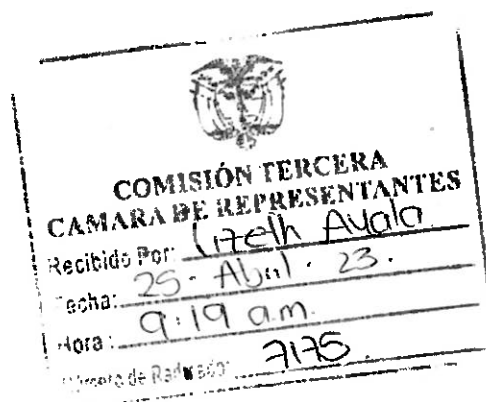 COMISIÓN TERCERA
CAMARA DE REPRESENTANTES
Recibido Por: Lizeth Ayala
Fecha: 25 - Abril - 23.
Hora: 9:19 a.m.
Número de Radicado: 7175.